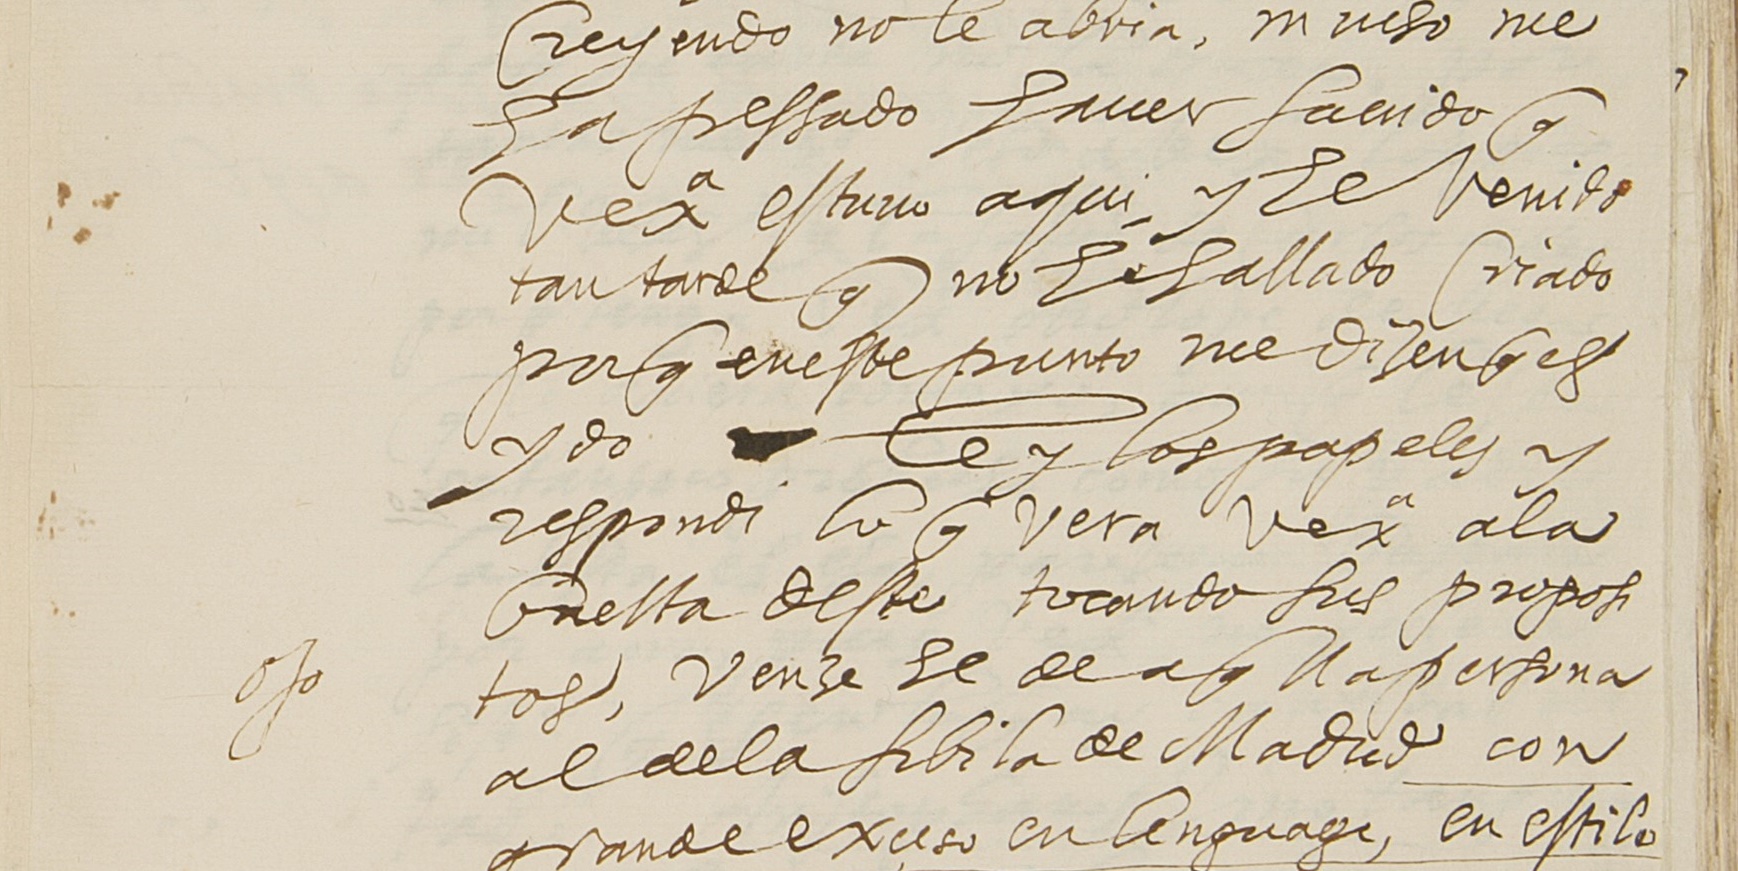 Creyendo no le abria, mucho me
ha pessado hauer sauido q
Vexª estuuo aqui, y he venido
tan tarde q no he hallado Criado
por q en este punto me dizen q es
ydo Ley los papeles y
respondi lo q vera Vexª a la
buelta deste tocando sus proposi
ojo
tos, venze se de aqlla persona
al de la sibila de Madrid con
grande exceso en lenguage, en estilo